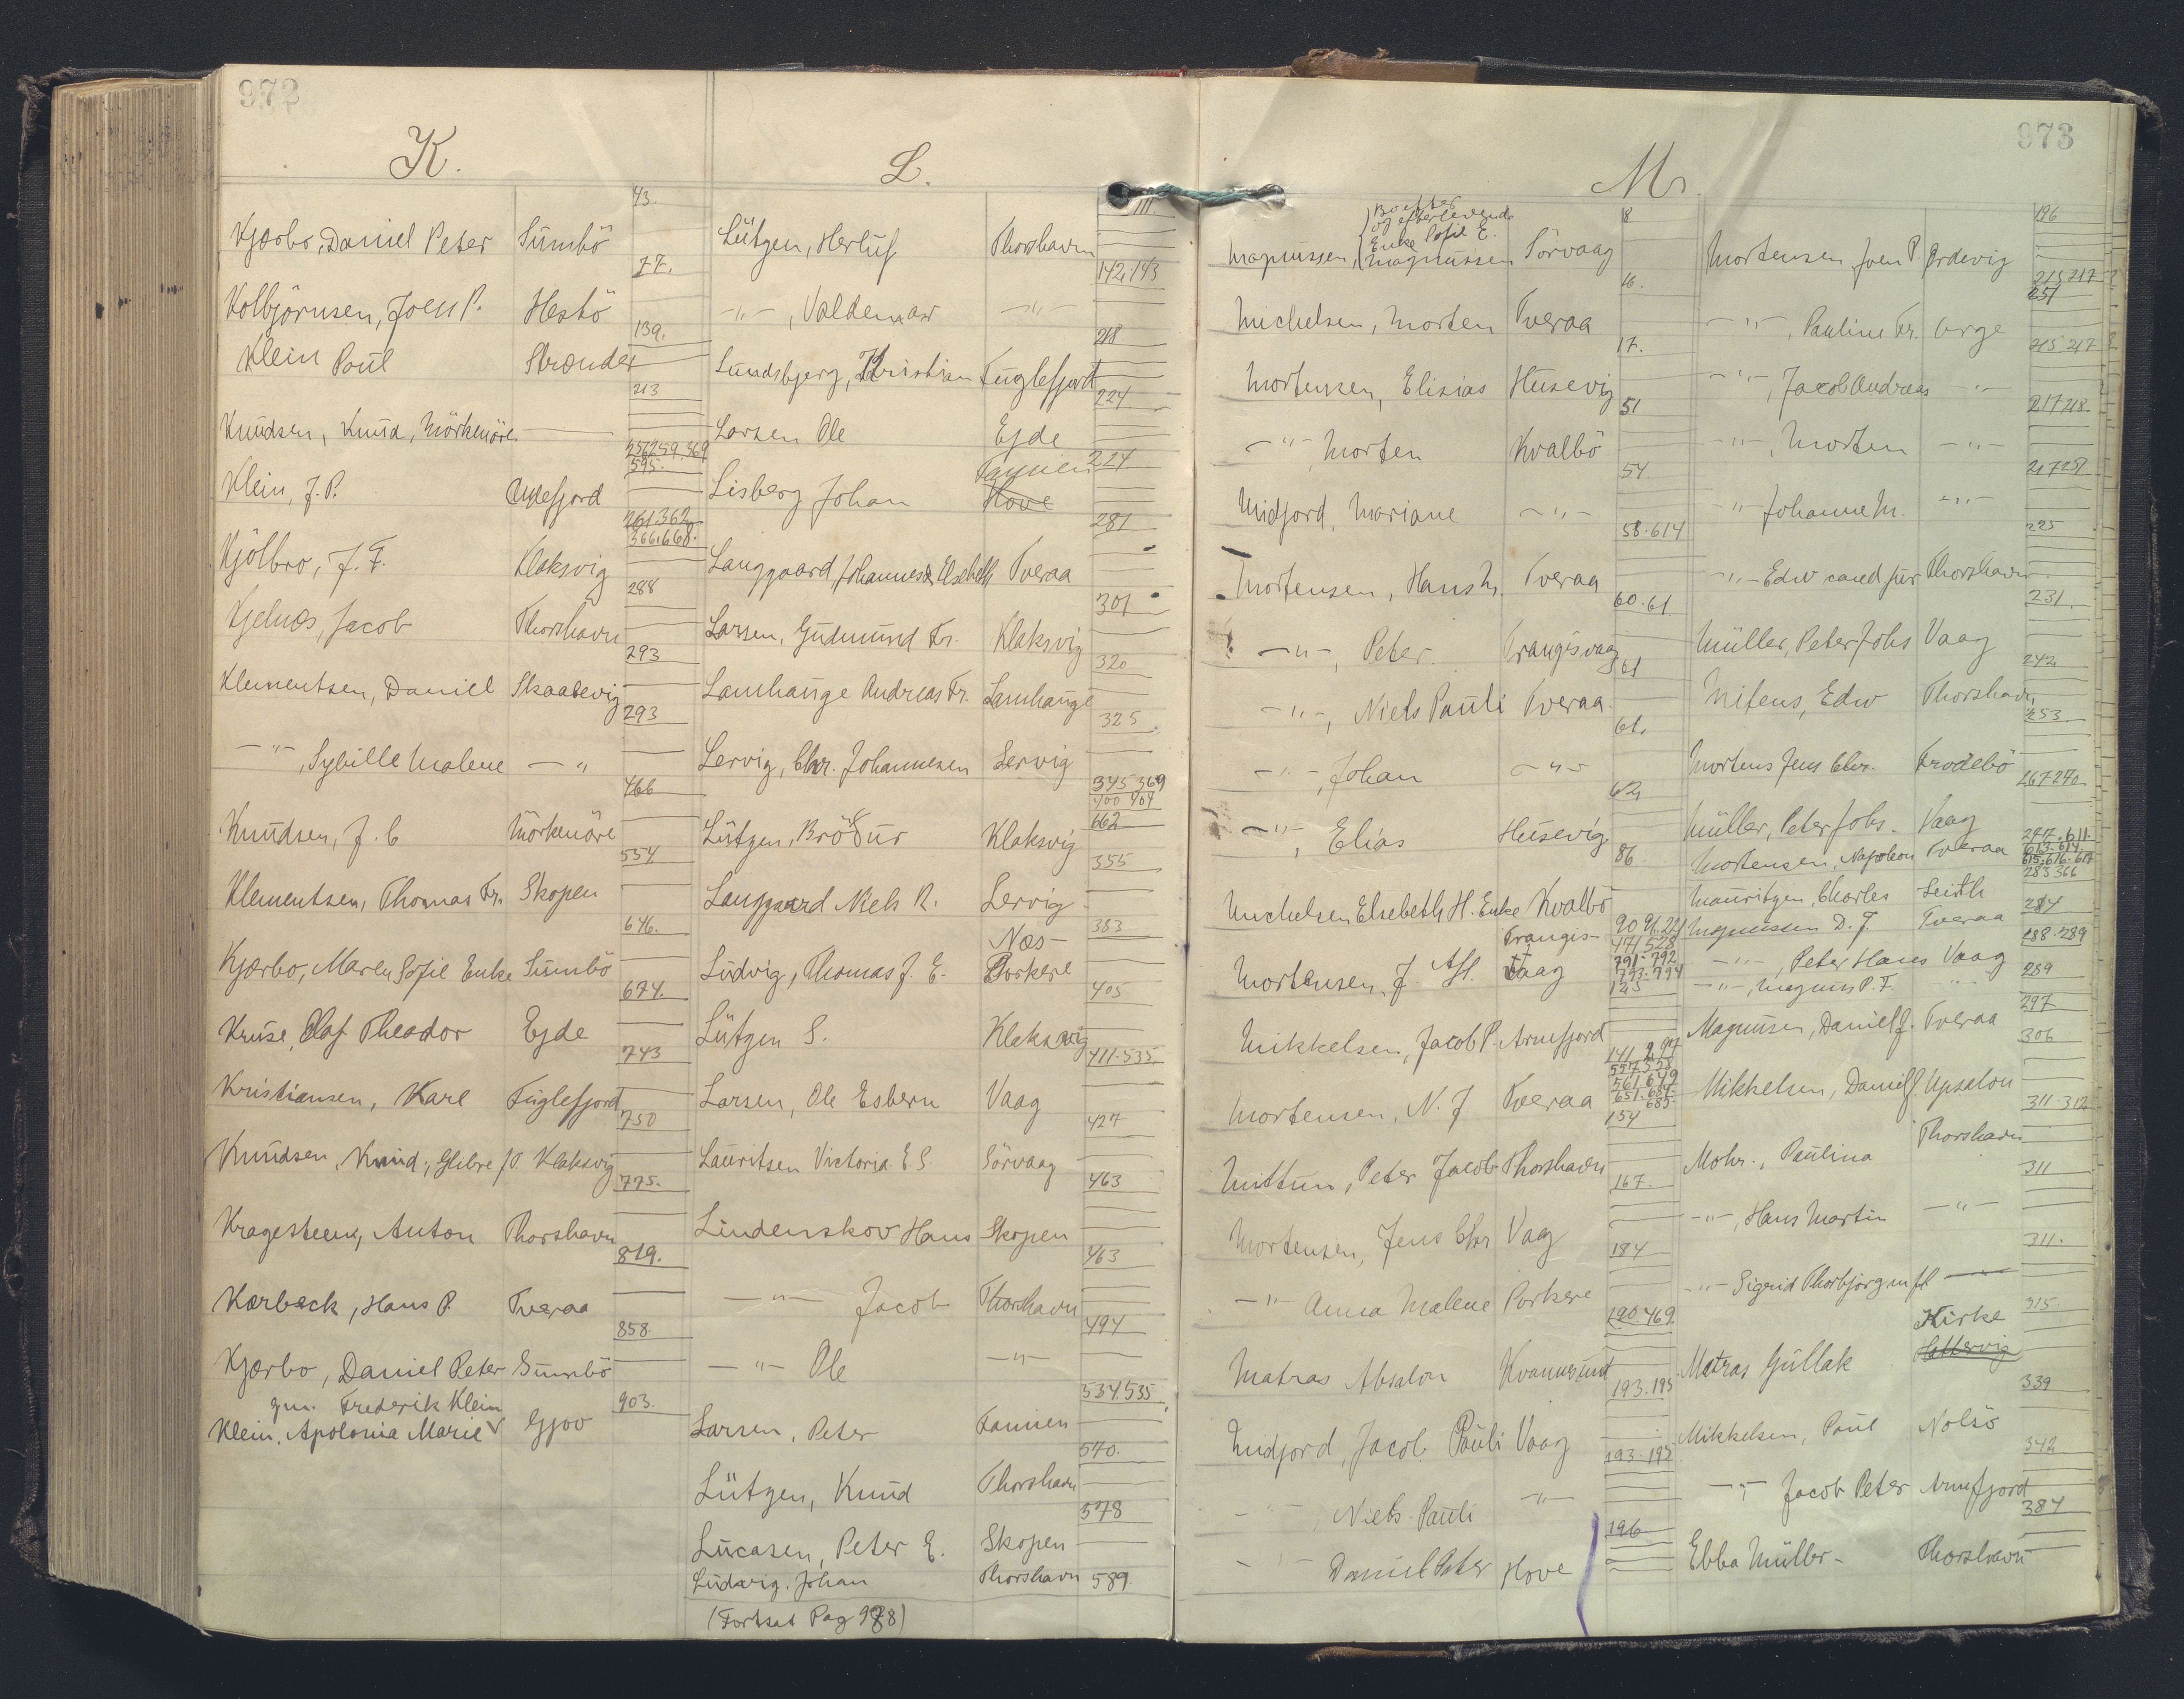 972
K.
43.
Kjærbo, Daniel Peter Sumbö
77.
Kolbjörnsen, Joen P. Hestö
139.
Klein Poul Strænder
213
Knudsen, Knud, Mörkenöre —
256 259. 369
595.
Klein, J. P. Andefjord
261. 362
366. 668.
Kjölbro, J. F. Klaksvig
288
Kjelnæs, Jacob Thorshavn
293
Klementsen, Daniel Skaalevig
293
-"-, Sybille Malene -"
466
Knudsen, J. C Mörkenöre
554
Klementsen, Thomas Fr. Skopen
646.
Kjærbo, Maren Sofie Enke Sumbö
674.
Kruse, Olaf Theador Ejde
743
Kristiansen, Karl Fuglefjord
750
Knudsen, Knud, Glibre J.O. Klaksvig
775.
Kragesteen, Anton Thorshavn
819.
Kærbeck, Hans P. Tveraa
858.
Kjærbo, Daniel Peter Sumbö
gm. Frederik Klein
903.
Klein, Apolonia Marie Gjov
L.
111
Lützen, Herluf Thorshavn
142, 143
-"-, Valdemar -"-
218
Lundsbjerg, Kristian Fuglefjord
224
Larsen Ole Ejde
224
Lisberg Johan Famien
Hove
281
Langgaard, Johannes & Elsebeth Tveraa
301
Larsen, Gudmund Fr. Klaksvig
320
Lamhauge Andreas Fr. Lamhauge
325
Lervig, Chr. Johannesen Lervig
345 369
400 404
662
Lützen, Bröður Klaksvig
355
Langgaard Niels R. Lervig
383
Ludvig, Thomas J. E. Næs-
Porkere
405
Lützen S. Klaksvig
411. 535
Larsen, Ole Esbern Vaag
427
Lauritsen Victoria E. S. Sörvaag
463
Lindenskov Hans Skopen
463
-"- Jacob Thorshavn
494
-"- Ole -"-
534. 535
Larsen, Peter Famien
570.
Lützen, Knud Thorshavn
578
Lucasen, Peter E. Skopen
Ludvig. Johan Thorshavn 589.
(Fortsat Pag 978)
973
M.
Bo efter
og efterlevende
Enke Sofie E.
8
Magnussen, Magnussen Sörvaag
16.
Michelsen, Morten Tveraa
17.
Mortensen, Elisias Husevig
51
-"- Morten Kvalbö
54
Midjord, Mariane -"-
58. 614
Mortensen, Hans M. Tveraa
60. 61
-"-, Peter. Trangisvaag
61
-"-, Niels Pauli Tveraa
61.
-"-, Johan -"-
62,
-"-, Elias Husevig
86
Michelsen Elsebeth H. Enke Kvalbö
471 528
791-792
793-794
Mortensen, J. Trangis-
vaag
125
Mikkelsen, Jacob P. Arnefjord
557 558
561. 649
685.
Mortensen, N. J Tveraa
154
Mittun, Peter Jacob Thorshavn
167.
Mortensen, Jens Chr Vaag
184
-"- Anna Malene Porkere
190. 469
Matras Absalon Kvannesund
193. 195
Midjord, Jacob Pauli Vaag
193. 195
Niels Pauli -"-
196
Daniel Peter Hove
196
Mortensen Joen P. Ördevig
215 217
251
-"-, Pauline Fr.Örge
215 217
-"-, Jacob Andreas -"-
217 218
-"-, Morten -"-
217 251
-"- Johanne M. -"-
225
-"- Edw cand jur Thorshavn
231.
Müller, Peter Johs Vaag
242
Mitens, Edw Thorshavn
253
Mortens Jens Chr. Frodebö
267 270
Müller, Peter Johs. Vaag
297. 611.
613. 614
615. 616. 617
Mortensen, Napoleon Tveraa
283 366
Mauritzen, Charles Leith
284
Magnussen D. J. Tveraa
288. 289
-"-, Peter Hans Vaag
289
-"-, Magnus P. F. "
297
Magnussen, Daniel J. Tveraa
306
Mikkelsen, Daniel J. Upsalon
311. 312
Mohr., Paulina Thorshavn
311
-"-, Hans Martin -"-
311.
-"- Sigrid Thorbjörg m fl —
315.
Matras Gullak Kirke
Hattervig
339
Mikkelsen, Poul Nolsö
342
-"- Jacob Peter Arnefjord
384
Ebba Müller- Thorshavn